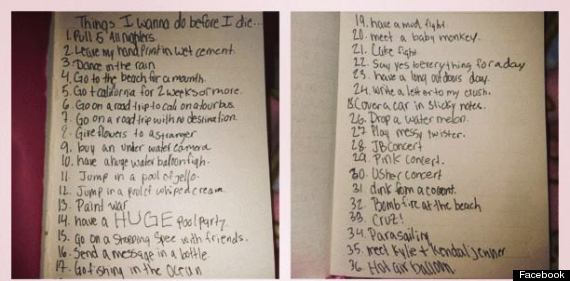 Things I wanna do before I die...
1. Pull 5 All nighters.
2. Leave my hand Print in wet cement.
3. Dance in the rain
4. Go to the beach for a mounth.
5. Go t california for 2 weeks or more.
6. Go on a road trip to cali on a tour bus.
7. Go on a road trip with no destination.
8. Give flowers to a stranger
9. buy an under water camera
10. have a huge water balloon figh.
11. Jump in a pool of jello.
12. Jump in a pool of whiped cream.
13. Paind war
14. have a HUGE Pool party.
15. Go on a Shopping Spee with friends.
16. Send a message in a bottle.
17. Go fishing in the Ocean
19. have a mud fight.
20. meet a baby monkey.
21. Cake fight
22. Say yes to everything for a day
23. have a long outdoors day.
24. write a letter to my crush.
Cover a car in Sticky notes.
26. Drop a water melon.
27. Play messy twister.
28. JB Concert
29. Pink Concert.
30. Usher concert
31. drink from a coconut.
32. Bomb fire at the beach
33. Cruz!
34. Parasailing
35. meet Kylie + Kendal jenner
36. Hot air balloon
Facebook